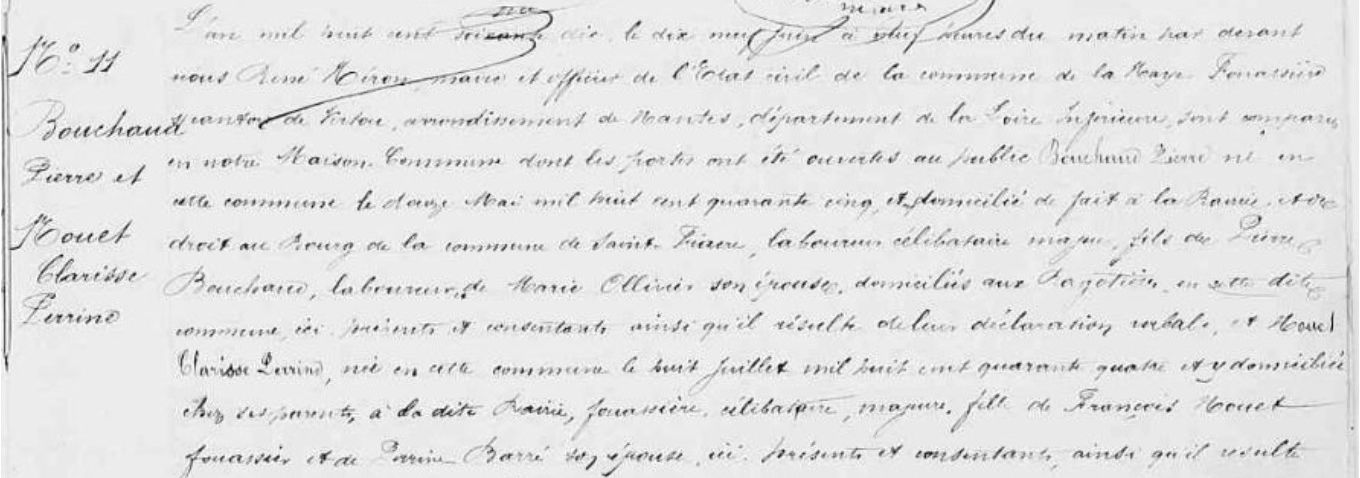 maire
L'an mil huit cent soixante dix, le dix neuf juin à neuf heures du matin par devant
N.º 11
nous René Héron, maire et officier de l'Etat civil de la commune de la Haye Fouassière
Bouchaud
canton de Vertou, arrondissement de Nantes, département de la Loire Inférieure, sont comparus
Pierre et
en notre Maison Commune dont les portes ont été ouvertes au public Bouchaud Pierre né en
cette commune le douze Mai mil huit cent quarante cinq, et domicilié de fait à la Rairie, et de
Houet
droit au Bourg de la commune de Saint Fiacre, laboureur célibataire majeur, fils de Pierre
Clarisse
Bouchaud, laboureur, de Marie Ollivier son épouse, domiciliés aux en cette dite
Perrine
commune, ici présents et consentants ainsi qu'il résulte de leur déclaration verbale, et Houet
Clarisse Perrine, née en cette commune le huit juillet mil huit cent quarante quatre et y domiciliée
chez ses parents, à la dite Rairie, fouassière, célibataire, majeure, fille de François Houet
fouassier et de Perrine Barré son épouse, ici présents et consentants, ainsi qu'il résulte